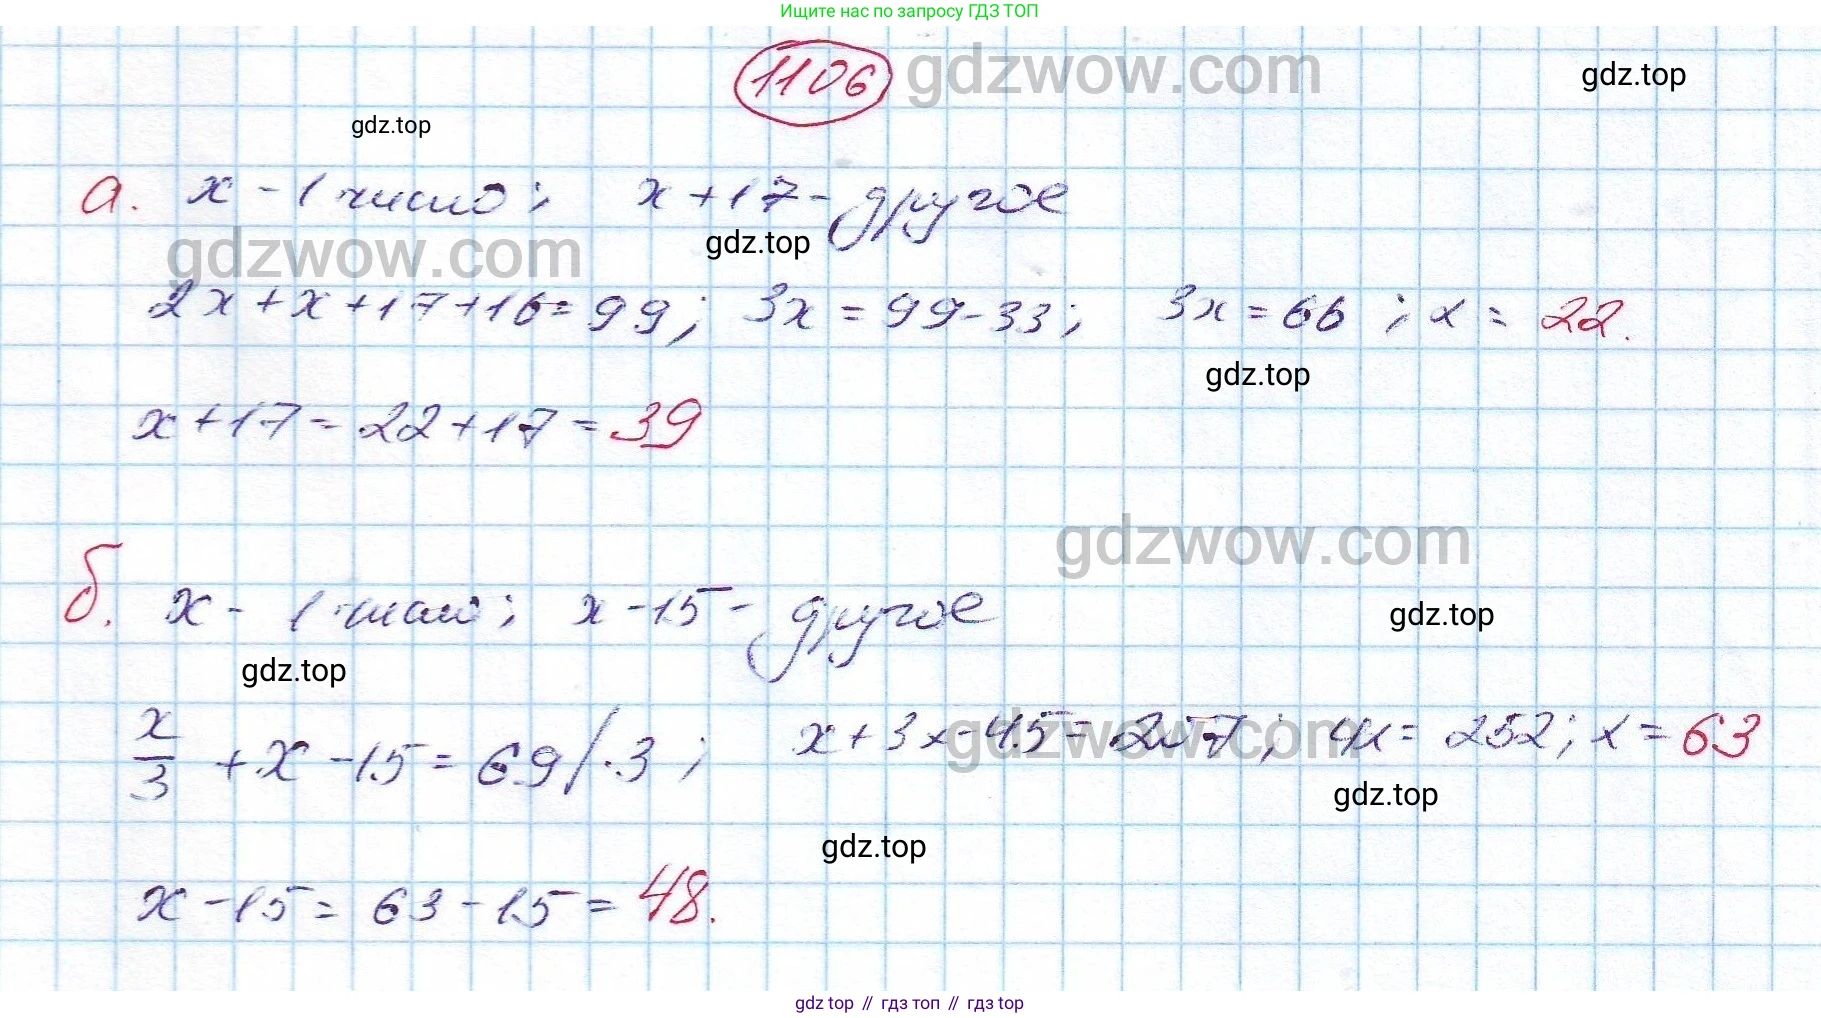 Ищите нас по запросу ГДЗ ТОП
1106 gdzwow.com gdz.top
gdz.top
а. x - 1 число; x + 17 - другое
gdzwow.com gdz.top
2x + x + 17 + 16 = 99; 3x = 99 - 33; 3x = 66; x = 22.
gdz.top
x + 17 = 22 + 17 = 39
gdzwow.com
б. x - 1 число; x - 15 - другое
gdz.top
gdz.top
x/3 + x - 15 = 69 / · 3; x + 3x - 45 = 207; 4x = 252; x = 63
gdzwow.com
gdz.top
gdz.top
x - 15 = 63 - 15 = 48.
gdz top // гдз топ // гдз top